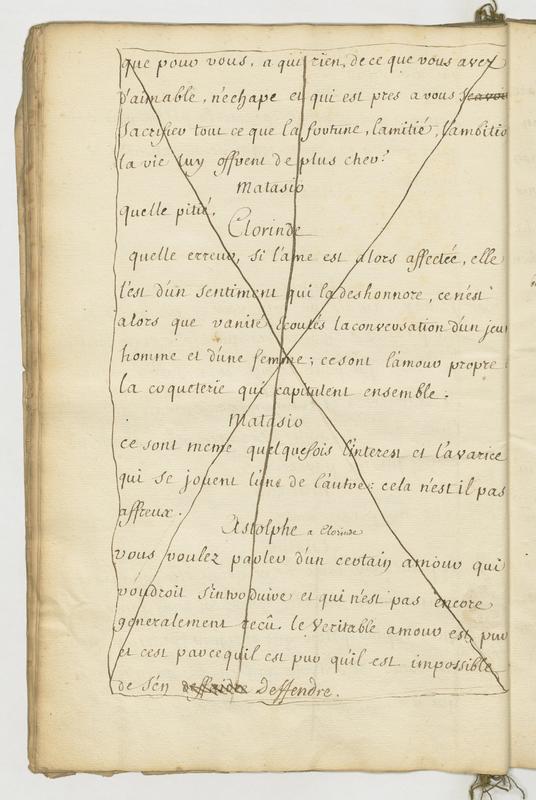 que pour vous, a qui rien, de ce que vous avez
d'aimable, n'echape et qui est pres a vous
Sacrifier tout ce que la fortune, lamitié, lambitio
la vie luy offrent de plus cher?
Matasio
quelle pitié.
Clorinde
quelle erreur, si l'ame est alors affectée, elle
l'est d'un sentiment qui la deshonnore, ce n'est
alors que vanité Ecoutés la conversation d'un jeu
homme et d'une femme; ce sont l'amour propre
la coqueterie qui capitulent ensemble.
Matasio
ce sont meme quelquefois l'interest et l'avarice
qui se jouent l'une de l'autre: cela n'est il pas
affreux.
Astolphe a Clorinde
vous voulez parler d'un certain amour qui
voudroit s'introduire et qui n'est pas encore
generalement recû. le Veritable amour est pur
et cest parcequil est pur qu'il est impossible
de s'en Deffendre.